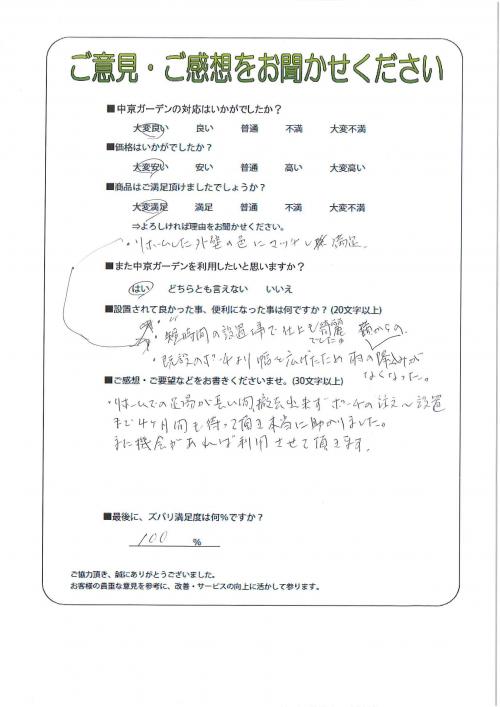 ご意見・ご感想をお聞かせください
■中京ガーデンの対応はいかがでしたか？
大変良い 良い 普通 不満 大変不満
■価格はいかがでしたか？
大変安い 安い 普通 高い 大変高い
■商品はご満足頂けましたでしょうか？
大変満足 満足 普通 不満 大変不満
⇒よろしければ理由をお聞かせください。
・リホームした外壁の色にマッチし 満足。
■また中京ガーデンを利用したいと思いますか？
はい どちらとも言えない いいえ
■設置されて良かった事、便利になった事は何ですか？(20文字以上)
・短時間の設置工事で仕上も綺麗でした。
・既設のポーチより幅を広げたため 横からの 雨の降込みがなくなった。
■ご感想・ご要望などをお書きくださいませ。(30文字以上)
・リホームでの足場が長い間、撤去出来ずポーチの注文〜設置
まで4ヶ月間も待って頂き本当に助かりました。
また機会があれば利用させて頂きます。
■最後に、ズバリ満足度は何％ですか？
100 %
ご協力頂き、誠にありがとうございました。
お客様の貴重な意見を参考に、改善・サービスの向上に活かして参ります。